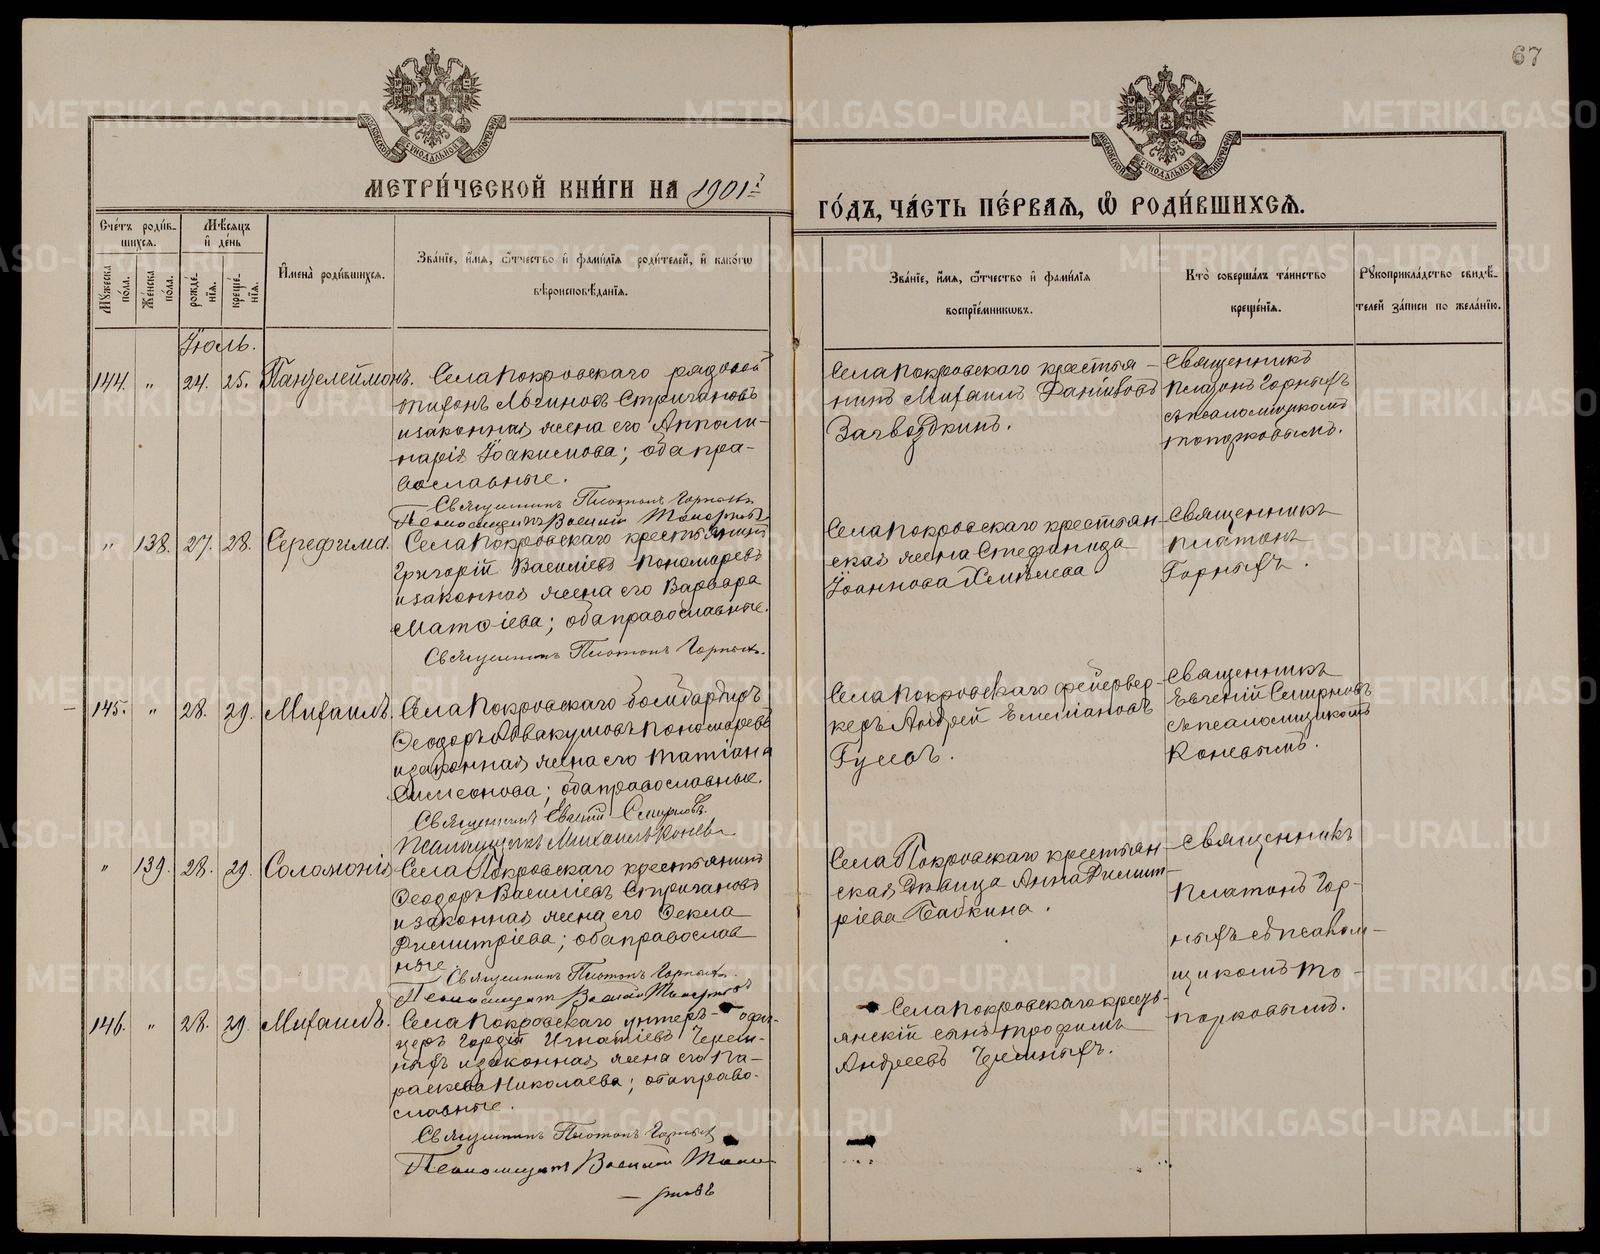 67
МОСКОВСКОЙ СѴНОДАЛЬНОЙ ТИПОГРАФІИ
МОСКОВСКОЙ СѴНОДАЛЬНОЙ ТИПОГРАФІИ
МЕТРИ́ЧЕСКОЙ КНИ́ГИ НА 1901й
ГО́ДЪ, ЧА́СТЬ ПЕ́РВАѦ, Ѡ҆ РОДИ́ВШИХСѦ.
Сче́тъ роди́в-
шихся.
Мѣ́сяцъ
и҆ де́нь
Му́жеска
по́ла.
Же́нска
по́ла.
рожде́-
нія.
креще́-
нія.
И҆мена̀ роди́вшихся.
Зва́ніе, и҆́мя, ѻ҆́тчество и҆ фами́лія роди́телей, и҆ како́гѡ
вѣроисповѣ́данія.
Зва́ніе, и҆́мя, ѻ҆́тчество и҆ фами́лія
воспріе́мникѡвъ.
Кто̀ соверша́лъ та́инство
креще́нія.
Рукоприкла́дство свидѣ́-
телей за́писи по жела́нію.
Іюль.
144. " 24. 25. Пантелеймонъ.
Села Покровскаго рядовой
Тихонъ Логиновъ Стригановъ
и законная жена его Апполи-
нарія Іоакимова; оба пра-
вославные.
Священникъ Платонъ Горныхъ
Псаломщикъ Василій Топорковъ
Села Покровскаго крестья-
нинъ Михаилъ
Загвоздкинъ.
Священникъ
Платонъ Горныхъ
съ псаломщикомъ
Топорковымъ.
" 138. 27. 28. Серафима.
Села Покровскаго крестьянинъ
Григорій Василіевъ Пономаревъ
и законная жена его Варвара
Матѳіева; оба православные.
Священникъ Платонъ Горныхъ.
Села Покровскаго крестьян-
ская жена Стефанида
Іоаннова Хмѣлева
Священникъ
Платонъ
Горныхъ.
145. " 28. 29. Михаилъ.
Села Покровскаго бомбардиръ
Ѳеодоръ Аввакумовъ Пономаревъ
и законная жена его Татіана
Симеонова; оба православные.
Священникъ Евгеній Смирновъ.
Псаломщикъ Михаилъ Коневъ
Села Покровскаго фейервер-
керъ Андрей Емеліановъ
Гусевъ.
Священникъ
Евгеній Смирновъ
съ псаломщикомъ
Коневымъ.
" 139. 28. 29. Соломонія
Села Покровскаго крестьянинъ
Ѳеодоръ Василіевъ Стригановъ
и законная жена его Ѳекла
Димитріева; оба православ
ные.
Священникъ Платонъ Горныхъ.
Псаломщикъ Василій Топорковъ
Села Покровскаго крестьян-
ская дѣвица Анна Димит-
ріева Бабкина.
Священникъ
Платонъ Гор-
ныхъ съ псалом-
щикомъ То-
порковымъ.
146. " 28. 29. Михаилъ.
Села Покровскаго унтеръ-офи-
церъ Гордій Игнатіевъ Черем-
ныхъ и законная жена его Па-
раскева Николаева; оба право-
славные.
Священникъ Платонъ Горныхъ
Псаломщикъ Василій Топо-
рковъ
Села Покровскаго кресть-
янскій сынъ Трофимъ
Андреевъ Черемныхъ.
METRIKI.GASO-URAL.RU